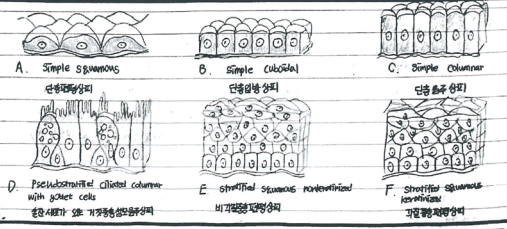 A. Simple squamous
단층편평상피
B. Simple Cuboidal
단층입방상피
C. Simple Columnar
단층원주상피
D. Pseudostratified ciliated columnar
with goblet cells
술잔세포가 있는 거짓중층섬모원주상피
E Stratified squamous nonkeratinized
비각질중층편평상피
F. Stratified squamous
keratinized
각질중층편평상피